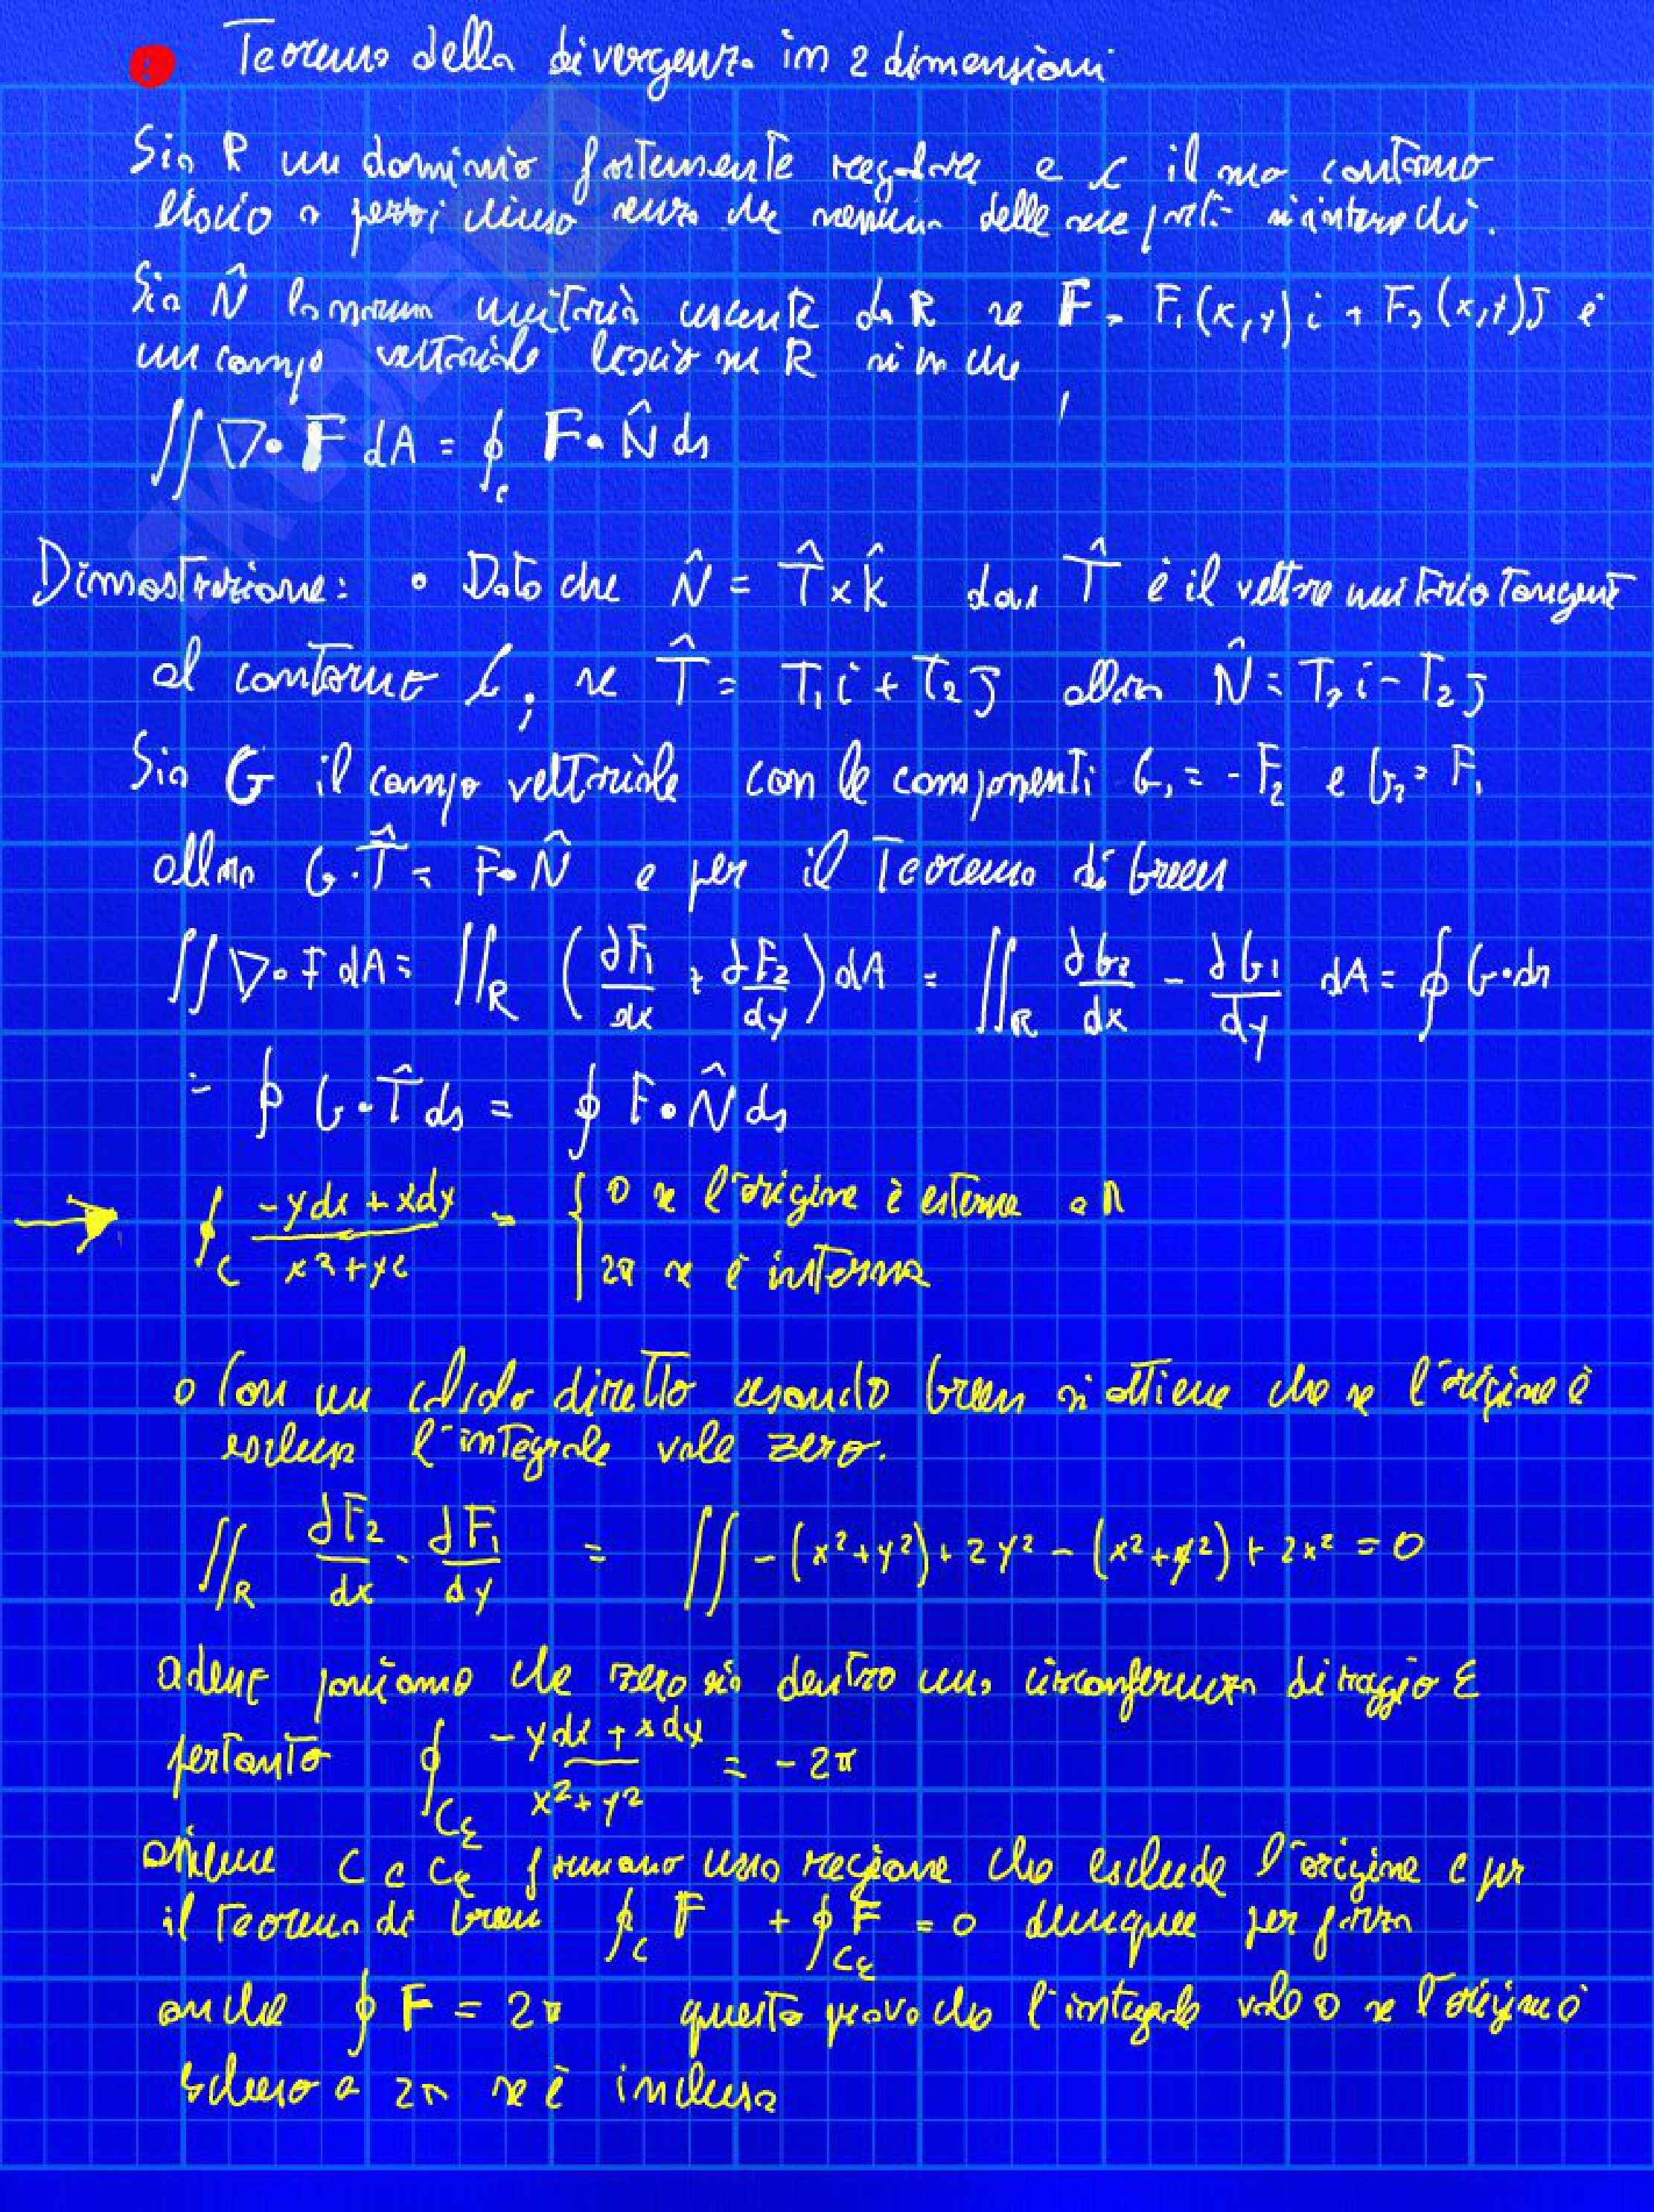 ! Teorema della divergenza in 2 dimensioni
Sia R un dominio fortemente regolare e C il suo contorno
liscio a pezzi chiuso senza che nessuna delle sue parti si intersechi.
Sia N̂ la norma unitaria uscente da R se F = F₁(x,y) i + F₂(x,y) j è
un campo vettoriale liscio su R si ha che
∬ ∇•F dA = ∮_C F•N̂ ds
Dimostrazione: • Dato che N̂ = T̂ × k̂ dove T̂ è il vettore unitario tangente
al contorno C; se T̂ = T₁ i + T₂ j allora N̂ = T₂ i - T₂ j
Sia G il campo vettoriale con le componenti G₁ = -F₂ e G₂ = F₁
allora G·T̂ = F•N̂ e per il Teorema di Green
∬ ∇•F dA = ∬_R (∂F₁/dx + ∂F₂/dy) dA = ∬_R ∂G₂/dx - ∂G₁/dy dA = ∮ G•dr
= ∮ G•T̂ ds = ∮ F•N̂ ds
→ ∮_C (-y dx + x dy)/(x² + y²) = { 0 se l'origine è esterna a R
2π se è interna
o Con un calcolo diretto usando Green si ottiene che se l'origine è
esclusa l'integrale vale zero.
∬_R ∂F₂/dx - ∂F₁/dy = ∬ -(x²+y²) + 2y² - (x²+y²) + 2x² = 0
poniamo che zero sia dentro una circonferenza di raggio ε
pertanto ∮_Cε (-y dx + x dy)/(x² + y²) = -2π
C e Cε formano una regione che esclude l'origine e per
il Teorema di Green ∮_C F + ∮_Cε F = 0 dunque per forza
anche ∮ F = 2π questo prova che l'integrale vale 0 se l'origine è
esclusa e 2π se è inclusa